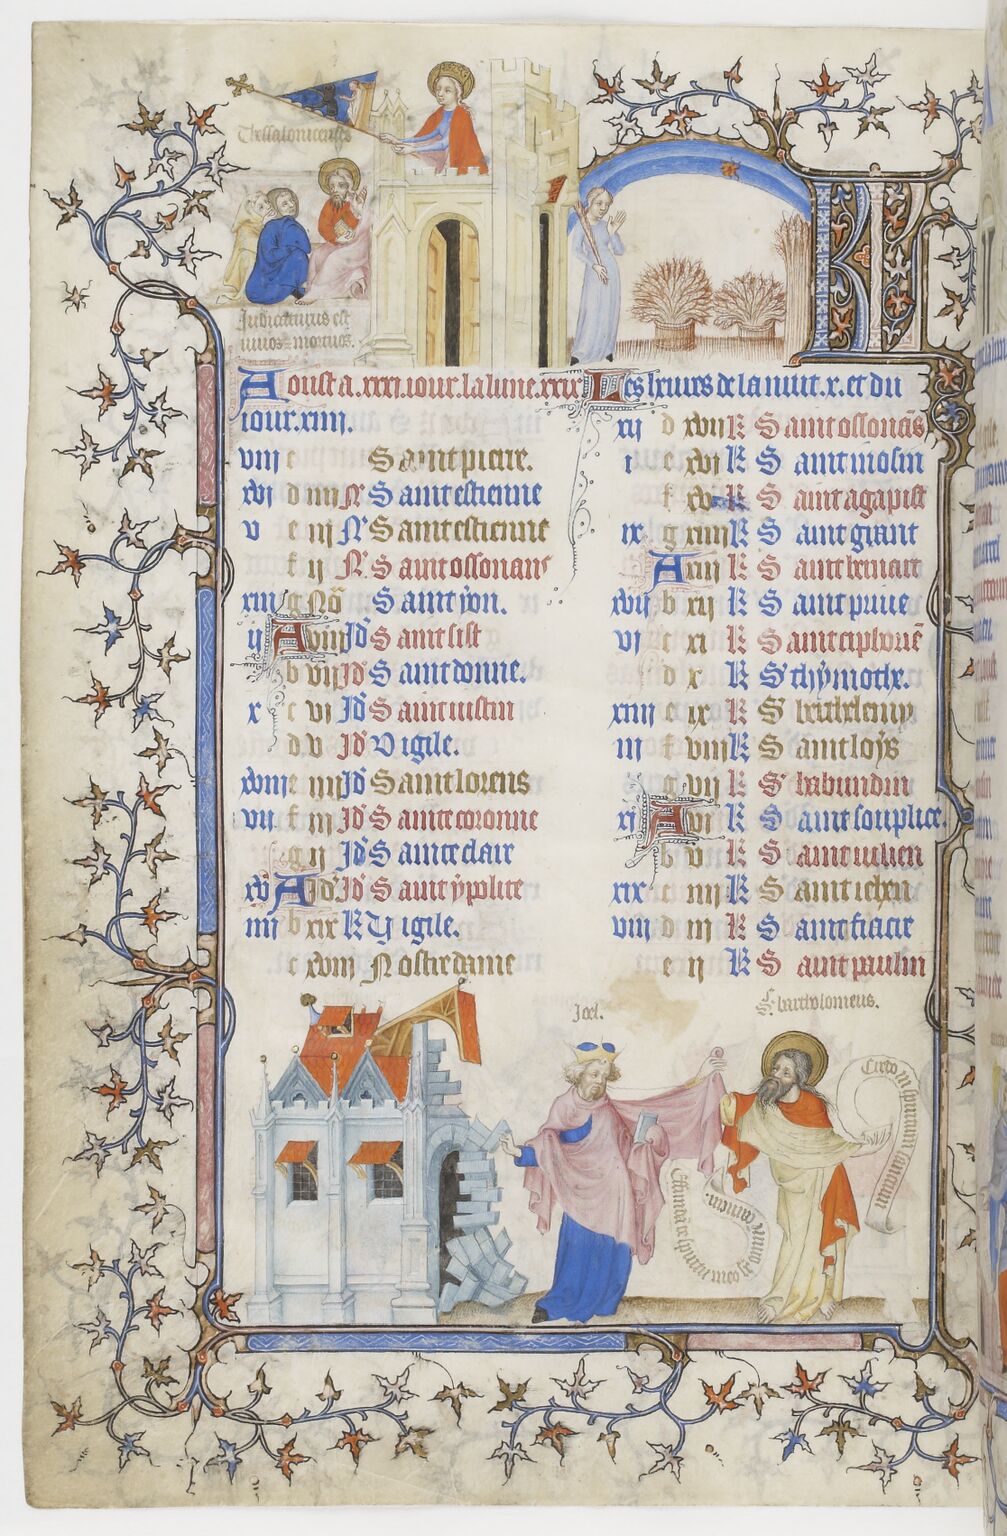 Thessalonicenses
Judicaturus est
vivos et mortuos.
KL
Aoust a .xxxi. iour. la lune .xxix
Les heures de la nuit .x. et du
iour .xiiii.
viii c Saint pierre.
xvi d iiii N' Saint estienne
v e iii N' Saint estienne
f ii N' Saint ossonart
xiii g No Saint yon.
ii A viii Id' Saint sist
b vii Id' Saint donne.
x c vi Id' Saint iustin
d v Id' Vigile.
xviii e iiii Id' Saint lorens
vii f iii Id' Sainte coronne
g ii Id' Sainte clair
xv A Id' Id' Saint ypolite
iiii b xix K Vigile.
c xviii Nostre dame
xii d xvii K Saint ossonas
i e xvi K Saint mosin
f xv K Saint agapist
ix g xiiii K Saint grant
A xiii K Saint bernart
xvii b xii K Saint prive
vi c xi K Saint ciphorie
d x K St thymothe.
xiiii e ix K St berthelemy
iii f viii K Saint loys
g vii K St habundin
xi A vi K Saint souplice.
b v K Saint iulien
xix c iiii K Saint iehan
viii d iii K Saint fiacre
e ii K Saint paulin
Joel.
S. bartholomeus.
Effundam de spiritu meo super omnem carnem.
Credo in spiritum sanctum